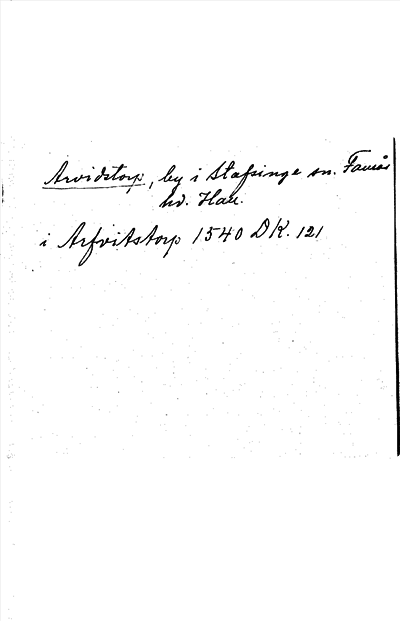 Arvidstorp, by i Stafsinge sn. Faurås
hd. Hall.
i Arfvitstorp 1540 DK. 121